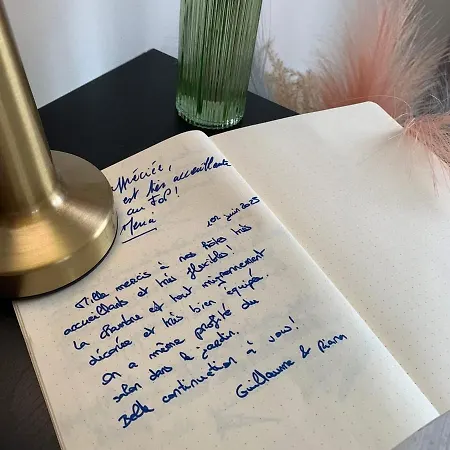 appréciée,
est très accueillante
au top !
Merci
1er juin 2025
Mille mercis à nos hôtes très
accueillants et très flexibles !
La chambre est tout mignonnement
décorée et très bien équipée.
On a même profité du
salon dans le jardin.
Belle continuation à vous !
Guillaume &